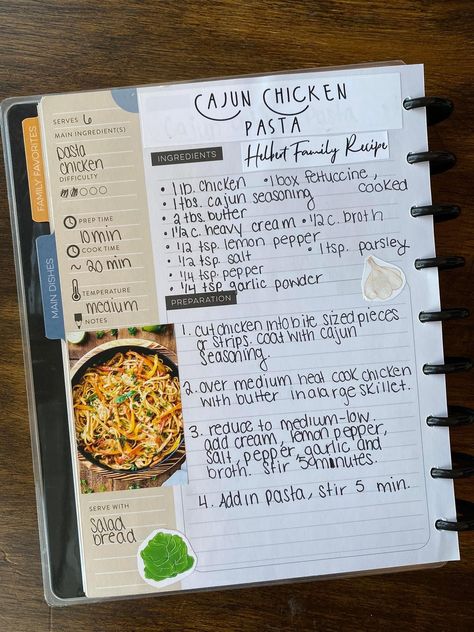 CAJUN CHICKEN
PASTA
Helbet Family Recipe
FAMILY FAVORITES
MAIN DISHES
SERVES 6
MAIN INGREDIENT(S)
pasta
chicken
DIFFICULTY
PREP TIME
10 min
COOK TIME
~ 20 min
TEMPERATURE
medium
NOTES
SERVE WITH
salad
bread
INGREDIENTS
• 1 lb. chicken • 1 box fettuccine, cooked
• 1 tbs. cajun seasoning
• 2 tbs. butter
• 1/2 c. heavy cream • 1/2 c. broth
• 1/2 tsp. lemon pepper
• 1/2 tsp. salt • 1 tsp. parsley
• 1/4 tsp. pepper
• 1/4 tsp garlic powder
PREPARATION
1. cut chicken into bite sized pieces
or strips. coat with cajun
seasoning.
2. over medium heat cook chicken
with butter in a large skillet.
3. reduce to medium-low.
add cream, lemon pepper,
salt, pepper, garlic and
broth. stir minutes.
4. Add in pasta, stir 5 min.